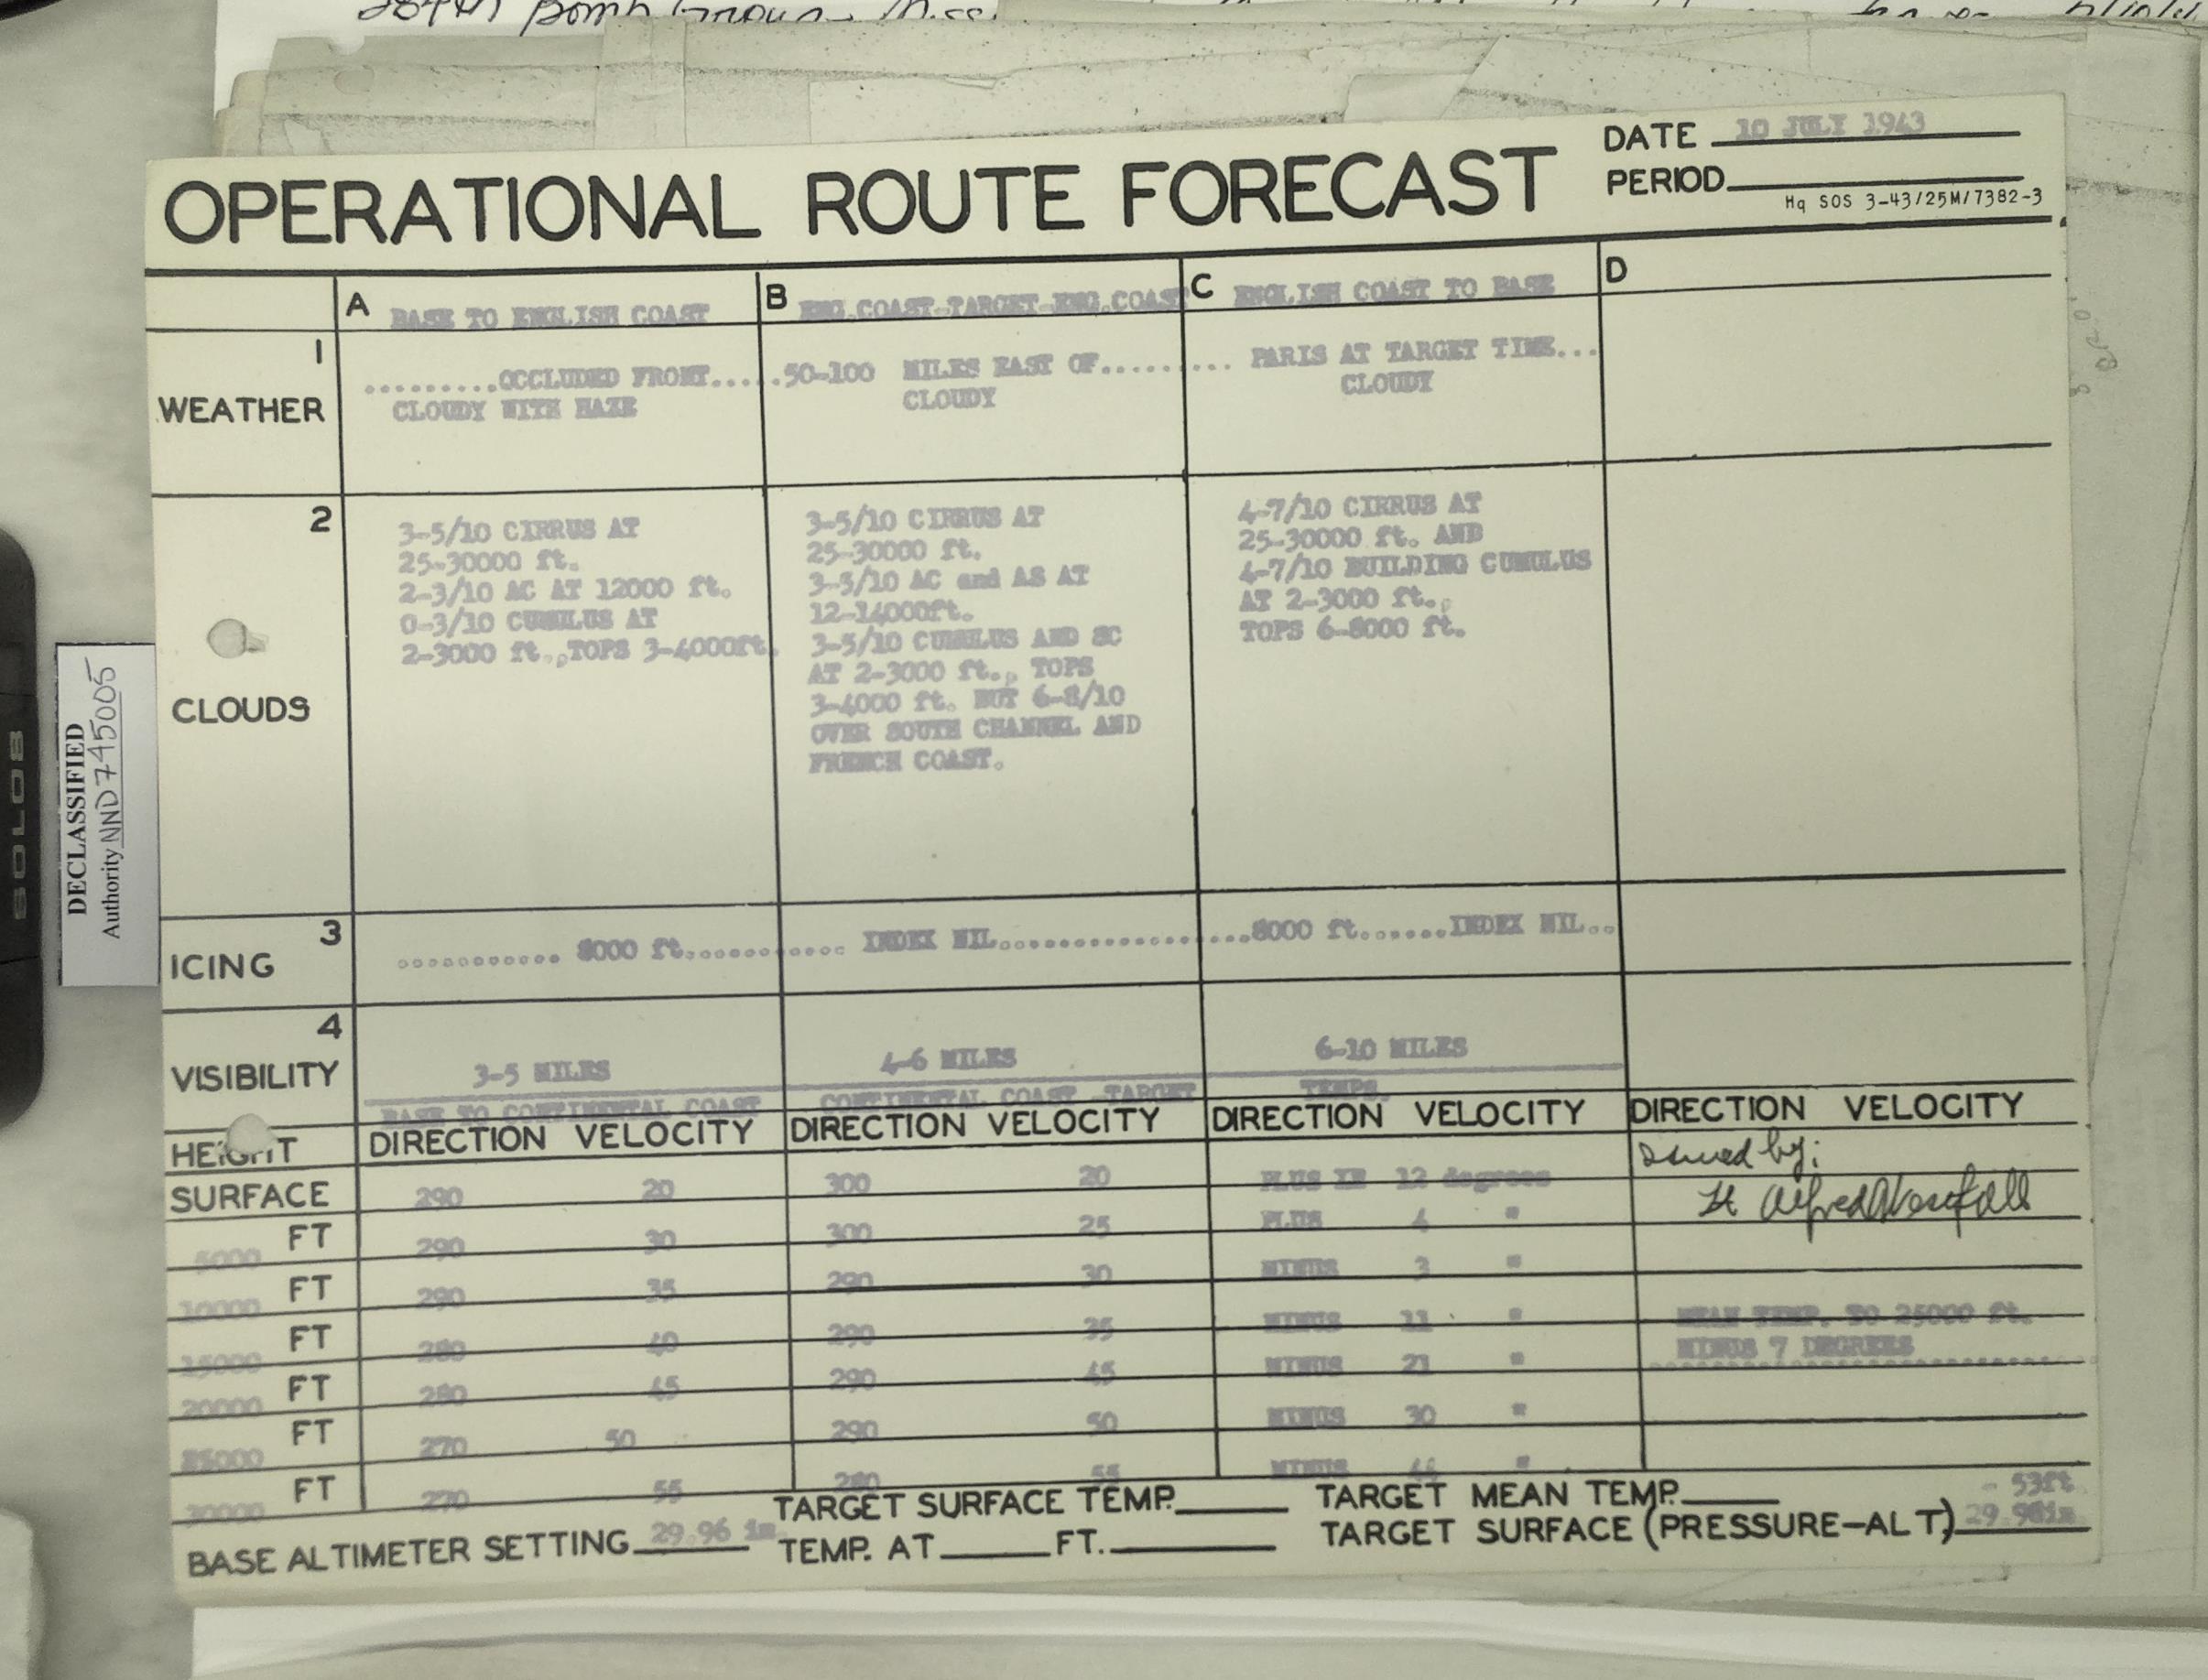 384th Bomb Group - Miss.
DATE 10 JULY 1943
OPERATIONAL ROUTE FORECAST
PERIOD
Hq SOS 3-43/25M/7382-3
A BASE TO ENGLISH COAST B ENG.COAST-TARGET-ENG.COAST C ENGLISH COAST TO BASE D
1
WEATHER
.........OCCLUDED FRONT.....50-100 MILES EAST OF......... ... PARIS AT TARGET TIME...
CLOUDY WITH HAZE CLOUDY CLOUDY
2
CLOUDS
3-5/10 CIRRUS AT
25-30000 ft.
2-3/10 AC AT 12000 ft.
0-3/10 CUMULUS AT
2-3000 ft.,TOPS 3-4000ft.
3-5/10 CIRRUS AT
25-30000 ft.
3-5/10 AC and AS AT
12-14000ft.
3-5/10 CUMULUS AND SC
AT 2-3000 ft., TOPS
3-4000 ft. BUT 6-8/10
OVER SOUTH CHANNEL AND
FRENCH COAST.
4-7/10 CIRRUS AT
25-30000 ft. AND
4-7/10 BUILDING CUMULUS
AT 2-3000 ft.,
TOPS 6-8000 ft.
3
ICING
........... 8000 ft........... INDEX NIL...................8000 ft.......INDEX NIL..
4
VISIBILITY 3-5 MILES 4-6 MILES 6-10 MILES
BASE TO CONTINENTAL COAST CONTINENTAL COAST -TARGET TEMPS.
HEIGHT DIRECTION VELOCITY DIRECTION VELOCITY DIRECTION VELOCITY DIRECTION VELOCITY
Issued by:
SURFACE 290 20 300 20 PLUS 12 degrees
Lt
5000 FT 290 30 300 25 PLUS 4 "
10000 FT 290 35 290 30 MINUS 3 "
15000 FT 280 40 290 35 MINUS 11 "
MEAN TEMP. TO 25000 ft.
MINUS 7 DEGREES
20000 FT 280 45 290 45 MINUS 21 "
25000 FT 270 50 290 50 MINUS 30 "
30000 FT 270 55 280 55 MINUS 44 "
BASE ALTIMETER SETTING 29.96 in.
TARGET SURFACE TEMP. TARGET MEAN TEMP. - 53ft
TEMP. AT FT. TARGET SURFACE (PRESSURE-ALT) 29.98in
DECLASSIFIED
Authority NND745005
SOLOS